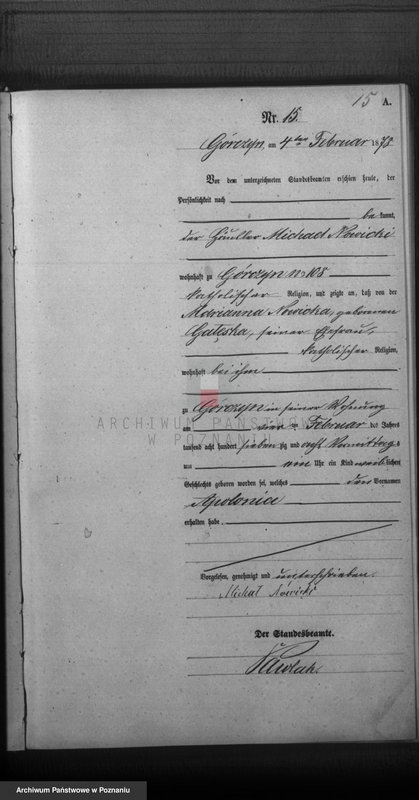 15 A.
Nr. 15.
Górczyn, am 4ten Februar 1878
Vor dem unterzeichneten Standesbeamten erschien heute, der
Persönlichkeit nach
be kannt,
der Häusler Michael Nowicki
wohnhaft zu Górczyn No 108
katholischer Religion, und zeigte an, daß von der
Marianna Nowicka, geborenen
seiner Ehefrau,
katholischer Religion,
wohnhaft bei ihm
zu Górczyn in seiner Wohnung
am Februar des Jahres
tausend acht hundert sieben zig und acht Vormittags
um Uhr ein Kind weiblichen
Geschlechts geboren worden sei, welches den Vornamen
Apolonia
erhalten habe.
Vorgelesen, genehmigt und unterschrieben
Michał Nowicki
Der Standesbeamte.
ARCHIWUM PAŃSTWOWE
W POZNANIU
Archiwum Państwowe w Poznaniu